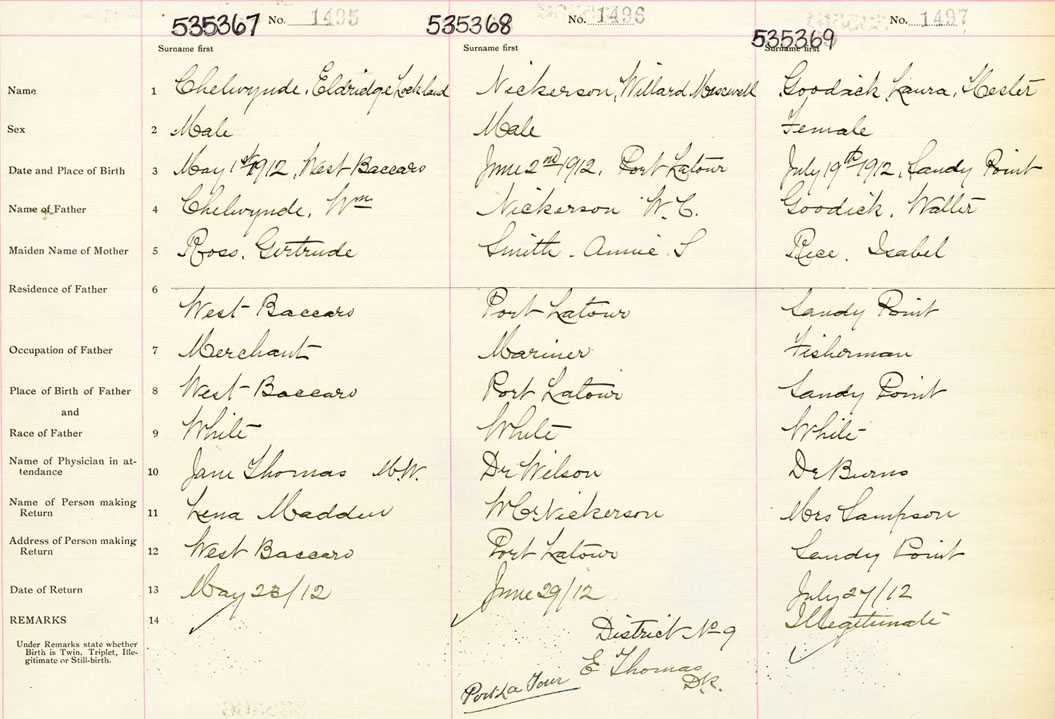 535367 No. 1495 535368 No. 1496 535369 No. 1497
Surname first Surname first Surname first
Name 1 Chelwynde, Eldridge Lockland Nickerson, Willard Goodick Laura, Hester
Sex 2 Male Male Female
Date and Place of Birth 3 May 1st 1912, West Baccaro June 2nd 1912, Port Latour July 19th 1912, Sandy Point
Name of Father 4 Chelwynde, Wm Nickerson W. C. Goodick, Walter
Maiden Name of Mother 5 Ross, Gertrude Smith. Annie. S Rice. Isabel
Residence of Father 6
West Baccaro Port Latour Sandy Point
Occupation of Father 7 Merchant Mariner Fisherman
Place of Birth of Father 8 West Baccaro Port Latour Sandy Point
and
Race of Father 9 White White White
Name of Physician in at-
tendance 10 Jane Thomas M.W. Dr Wilson Dr Burns
Name of Person making
Return 11 Lena Madden W C Nickerson Mrs Sampson
Address of Person making
Return 12 West Baccaro Port Latour Sandy Point
Date of Return 13 May 23/12 June 29/12 July 27/12
REMARKS 14 Illegitimate
Under Remarks state whether
Birth is Twin, Triplet, Ille-
gitimate or Still-birth.
District No 9
E Thomas
D.R.
Port La Tour